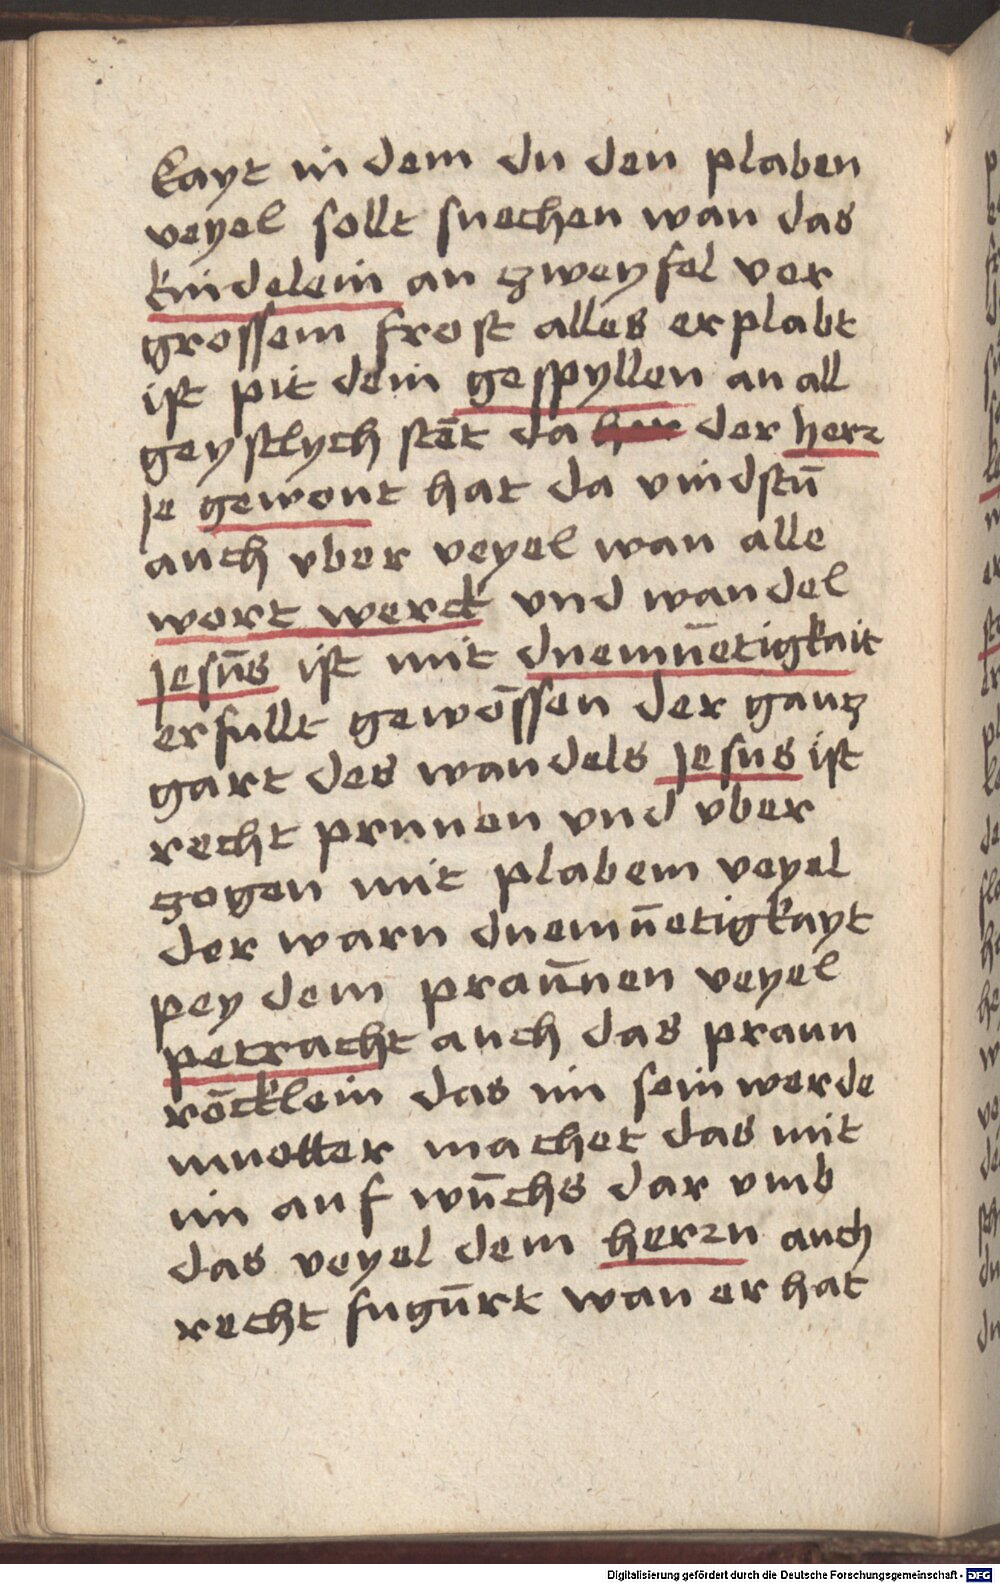 kayt in dem du den plaben
veyel sollt suechen wan das
kindelein an zweyfel ver
grossem frost alles erplabt
ist pit dein gespyllen an all
geystlych stēt da her der herr
Je gewont hat da vindstū
auch vber veyel wan alle
wort werck vnd wandel
Jesūs ist mit duemūetigkait
erfullt gewōssen der gantz
gart des wandels Jesus ist
recht prunen vnd vber
zogen mit plabem veyel
der warn duemūetigkayt
pey dem praūnen veyel
petracht auch das praun
rōcklein das im sein werde
muotter machet das mit
im auf wūchs dar vmb
das veyel dem herrn auch
recht fugūrt wan er hat
Digitalisierung gefördert durch die Deutsche Forschungsgemeinschaft - DFG